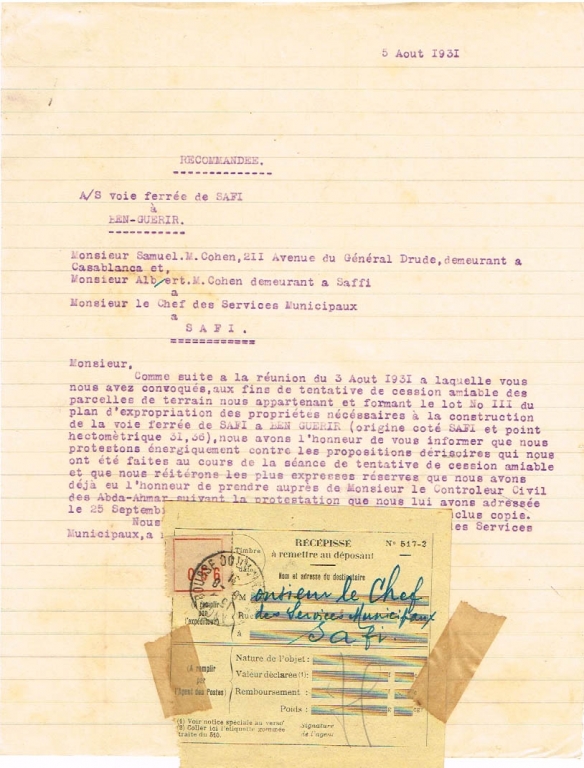 5 Aout 1931
RECOMMANDEE.
A/S voie ferrée de SAFI
à
BEN-GUERIR.
Monsieur Samuel.M.Cohen,211 Avenue du Général Drude,demeurant a
Casablanca et,
Monsieur Albert.M.Cohen demeurant a Saffi
a
Monsieur le Chef des Services Municipaux
a
S A F I .
Monsieur,
Comme suite a la réunion du 3 Aout 1931 a laquelle vous
nous avez convoqués,aux fins de tentative de cession amiable des
parcelles de terrain nous appartenant et formant le lot No III du
plan d'expropriation des propriétés nécéssaires à la construction
de la voie ferrée de SAFI a BEN GUERIR (origine coté SAFI et point
hectométrique 31,36),nous avons l'honneur de vous informer que nous
protestons énergiquement contre les propositions dérisoires qui nous
ont été faites au cours de la séance de tentative de cession amiable
et que nous réitérons les plus expresses réserves que nous avons
déjà eu l'honneur de prendre auprès de Monsieur le Controleur Civil
des Abda-Ahmar suivant la protestation que nous lui avons adressée
le 25 Septemb clus copie.
Nous es Services
Municipaux,a
RÉCÉPISSÉ N° 517-2
à remettre au déposant
Timbre
Nom et adresse du destinataire
Monsieur le Chef
des Services Municipaux
à Safi
(A remplir
par
l'expéditeur)
Nature de l'objet :
Valeur déclarée (1) :
Remboursement :
Poids :
(A remplir
par
l'Agent des Postes)
(1) Voir notice spéciale au verso
(2) Coller ici l'étiquette gommée
extraite du 510.
Signature
de l'agent